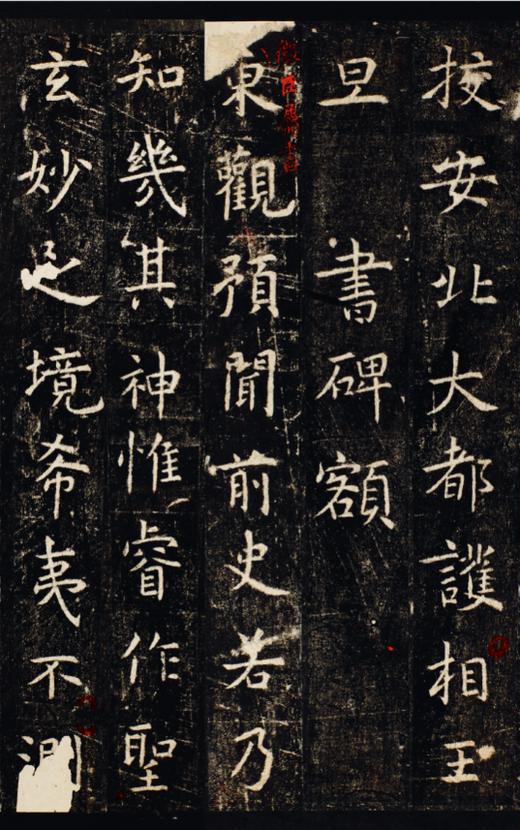 挍安北大都護相王
旦　書碑額
東觀預聞前史若乃
知幾其神惟睿作聖
玄妙之境希夷不測